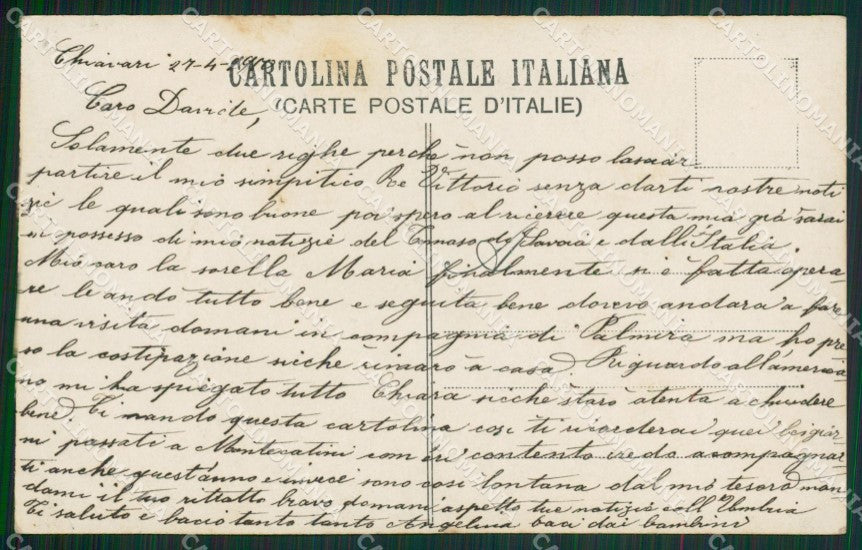 Chiavari 27-4-
CARTOLINA POSTALE ITALIANA
(CARTE POSTALE D'ITALIE)
Caro Davide,
Solamente due righe perchè non posso lasciar
partire il mio simpitico Re Vittorio senza darti nostre noti
zie le quali sono buone poi spero al ricevere questa mia già sarai
in possesso di mio notizie del Tomaso di Savoia e dalli Italia.
Mio caro la sorella Maria finalmente si è fatta opera
re le andò tutto bene e seguita bene dovevo andara a fare
una visita domani in compagnia di Palmira ma ho pre
so la costipazione sicche rimarò a casa. Riguardo all'america
no mi ha spiegato tutto Chiara sicchè starò atenta a chiudere
bene. Ti mando questa cartolina così ti ricorderai quei bei gior
ni passati a Montecatini com'eri contento credo acompagnar
ti anche quest'anno e invece sono così lontana dal mio tesoro man
dami il tuo ritratto bravo domani aspetto tue notizie coll'Umbria
Ti saluto e bacio tanto tanto Angelina baci dai bambini
CARTOLINOMANIA